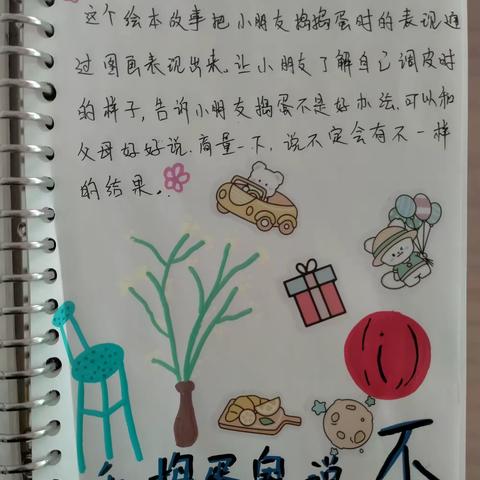 这个绘本故事把小朋友捣捣蛋时的表现通
过图画表现出来。让小朋友了解自己调皮时
的样子,告诉小朋友捣蛋不是好办法,可以和
父母好好说.商量一下,说不定会有不一样
的结果。
捣蛋鬼说不